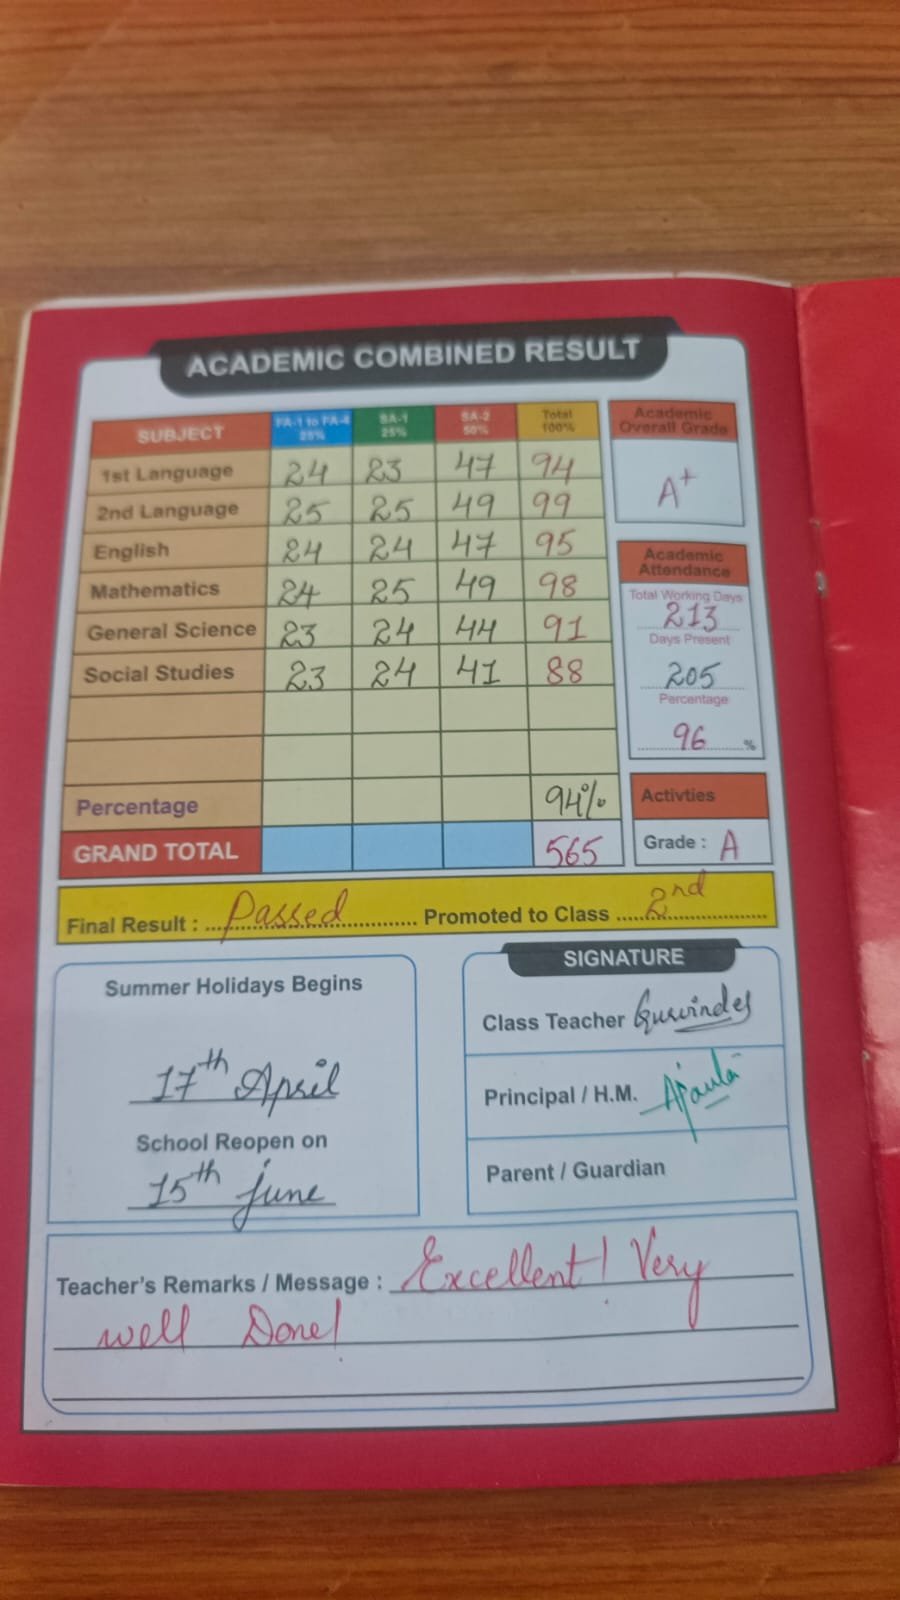 ACADEMIC COMBINED RESULT
SUBJECT FA-1 to FA-4 25% SA-1 25% SA-2 50% Total 100%
1st Language 24 23 47 94
2nd Language 25 25 49 99
English 24 24 47 95
Mathematics 24 25 49 98
General Science 23 24 44 91
Social Studies 23 24 41 88
Percentage 94%
GRAND TOTAL 565
Academic
Overall Grade
A+
Academic
Attendance
Total Working Days
213
Days Present
205
Percentage
96 %
Activties
Grade : A
Final Result : Passed Promoted to Class 2nd
Summer Holidays Begins
17th April
School Reopen on
15th june
SIGNATURE
Class Teacher Gurvinder
Principal / H.M.
Parent / Guardian
Teacher's Remarks / Message : Excellent! Very
well Done!